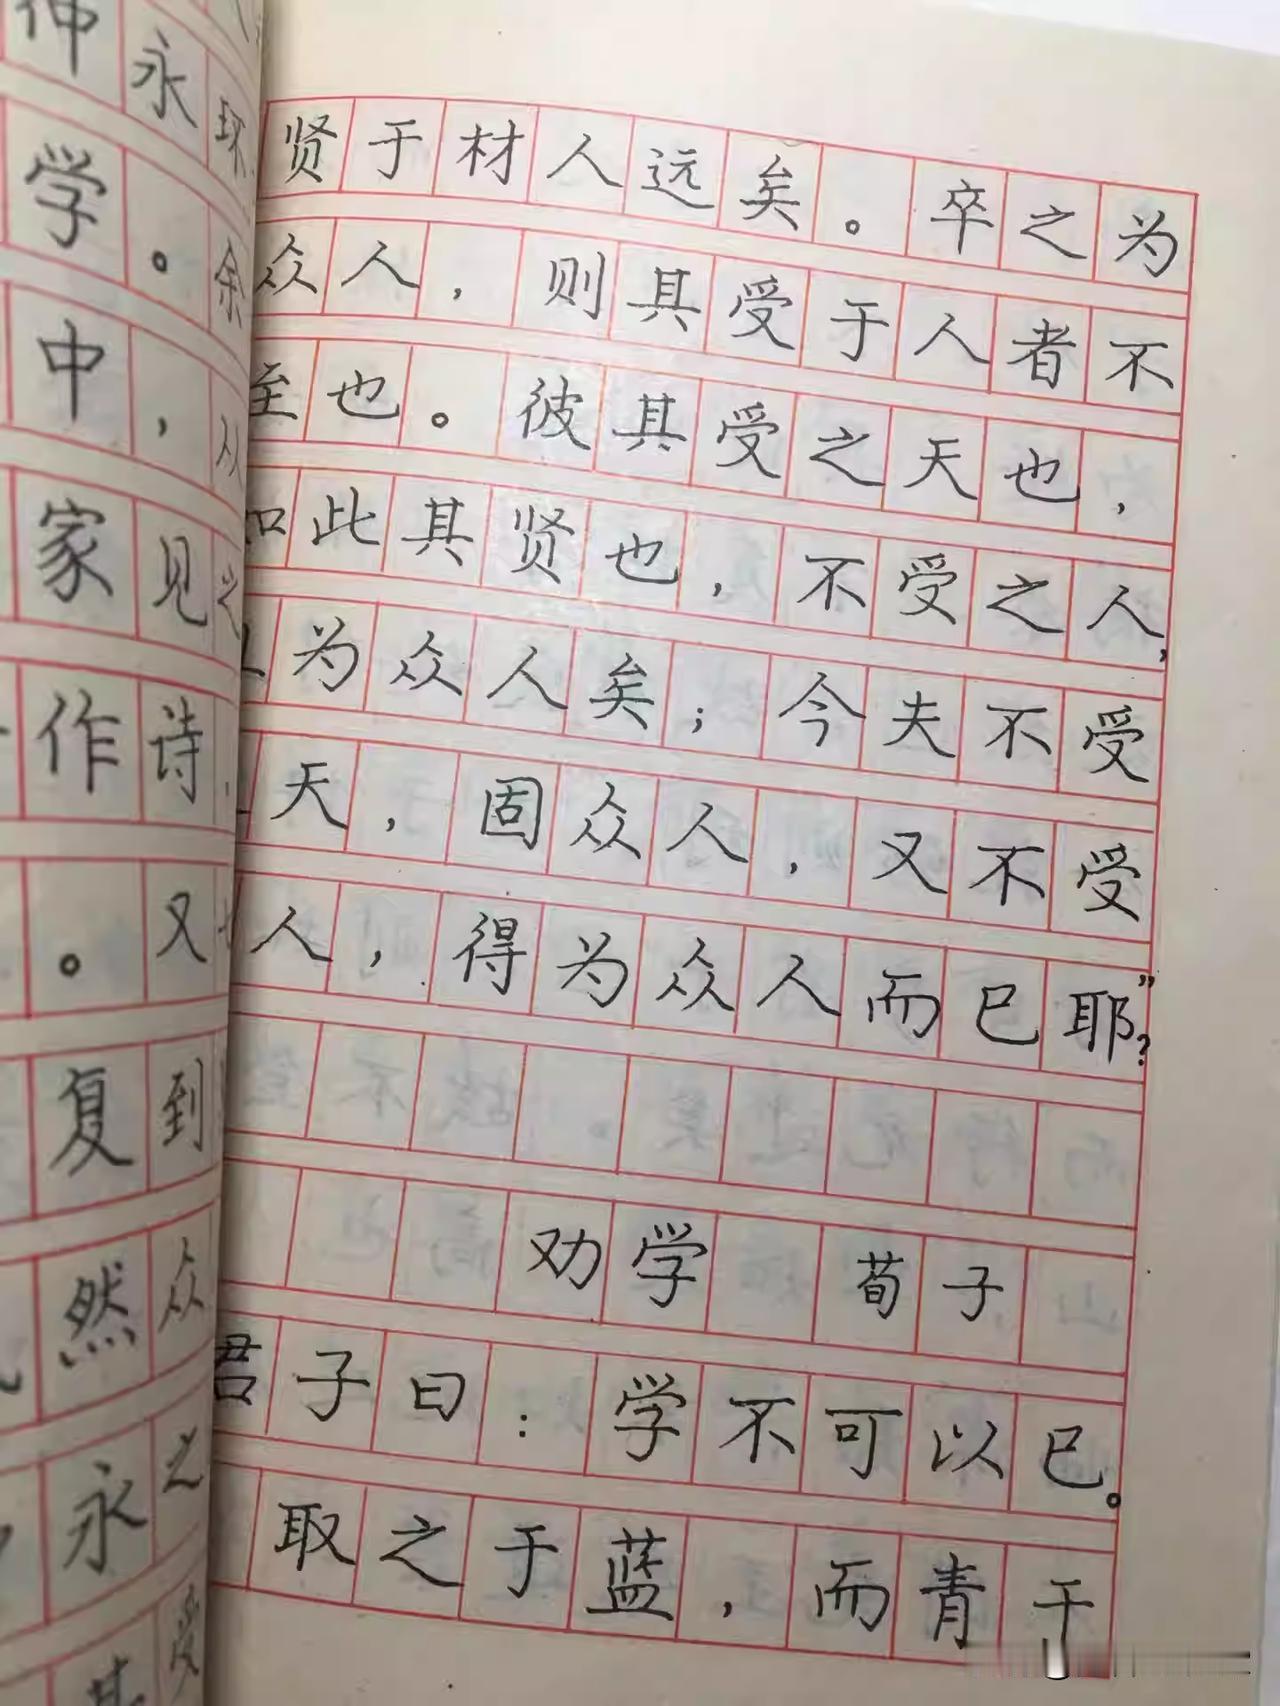 伸永环
学。余
中，从
家见之
作诗
。又
复到
然众
永之
其受
贤于材人远矣。卒之为
众人，则其受于人者不
至也。彼其受之天也，
如此其贤也，不受之人，
为众人矣；今夫不受
天，固众人，又不受
人，得为众人而已耶？”
劝学 荀子
君子曰：学不可以已。
取之于蓝，而青于